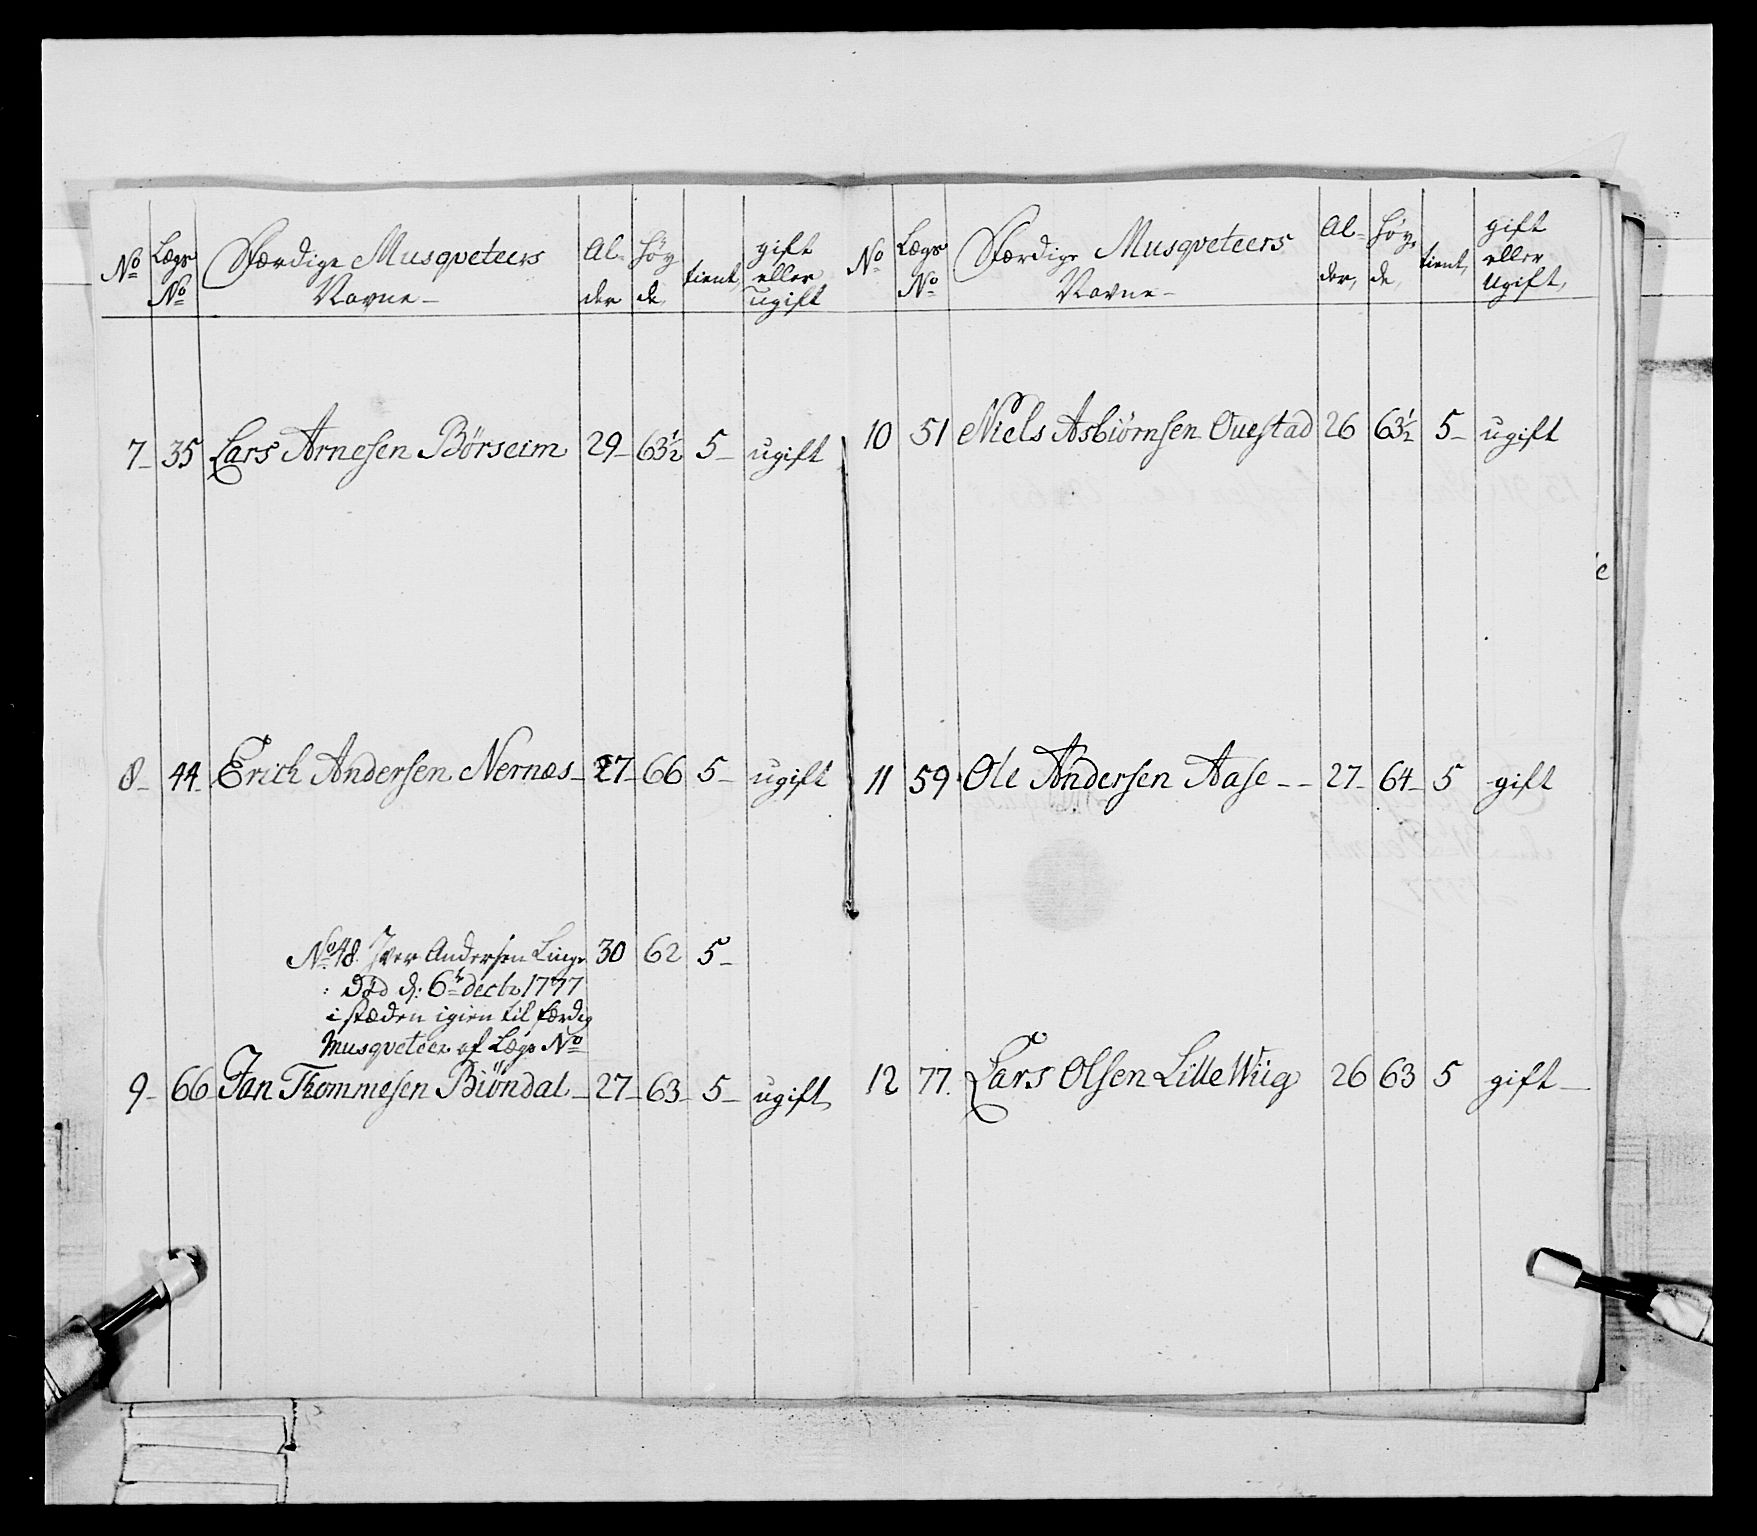 No Lægs No Færdige Musqveteers Navne - Al- der Høy de, tient, gift eller ugift
7 - 35 Lars Arnesen Børseim 29 - 63½ 5 - ugift
8 - 44 - Erich Andersen Nernæs - 27 - 66 5 - ugift
No 48. Iver Andersen Linge 30 62 5 -
: Død d: 6te decbr 1777
i stæden igien til færdig
Musqveteer af Lægs No
9 - 66 - Jan Thommesen Biöndal - 27 - 63 - 5 - ugift,
No Lægs No Færdige Musqveteers Navne - Al- der, Høy, de, tient, gift eller ugift,
10 51 Niels Asbiörnsen Ouestad 26 63½ 5 - ugift
11 59 Ole Andersen Aase - - 27 - 64 - 5 gift
12 77. Lars Olsen Lille Wiig 26 63 5 gift -